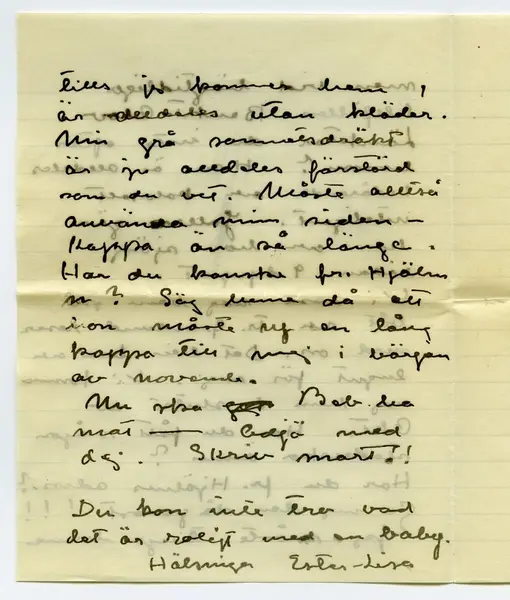 tills jag kommer hem,
är alldeles utan kläder.
Min grå sammetsdräkt
är ju alldeles förstörd
som du vet. Måste alltså
använda min siden-
kappa än så länge.
Har du kanske fr. Hjälm
n? Säg henne då att
hon måste sy en lång
kappa till mej i början
av november.
Nu ska Beb. ha
mat — Adjö med
dej. Skriv snart!!
Du kan inte tro vad
det är roligt med en baby.
Hälsningar Ester-Lisa